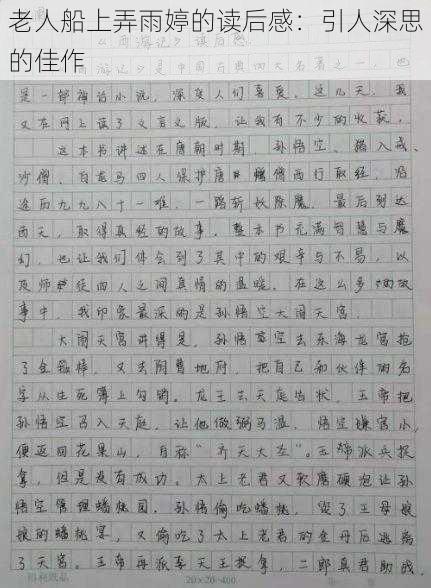 老人船上弄雨婷的读后感：引人深思
的佳作
《西游记》读后感
西游记》是中国古典四大名著之一，也
是一部神话小说，深受人们喜爱。这几天，我
又在网上读了文言文版，让我有不少的收获，
这本书讲述在唐朝时期，孙悟空、猪八戒、
沙僧、白龙马四人保护唐僧西行取经，沿
途历九九八十一难，一路斩妖除魔，最后到达
西天，取得真经的故事。整本书充满智慧与魔
幻，也让我们体会到了其中的艰辛与不易，以
及师徒四人之间真情的温暖。在这么多的故
事中，我印象最深的是孙悟空大闹天宫。
大闹天宫讲得是，孙悟空去东海龙宫抢
了金箍棒，又去阴曹地府，把自己和伙伴的名
字从生死簿上勾销。龙王去天庭告状，玉帝把
孙悟空召入天庭，让他做弼马温，悟空嫌官小，
便返回花果山，自称“齐天大圣”。玉帝派兵捉
拿，但是没有成功。太上老君又软磨硬泡让孙
悟空管理蟠桃园，孙悟偷吃蟠桃，毁了王母娘
娘的蟠桃宴，又偷吃了太上老君的金丹后逃离
了天宫。玉帝再派李天王捉拿，二郎真君助战，
20×20=400